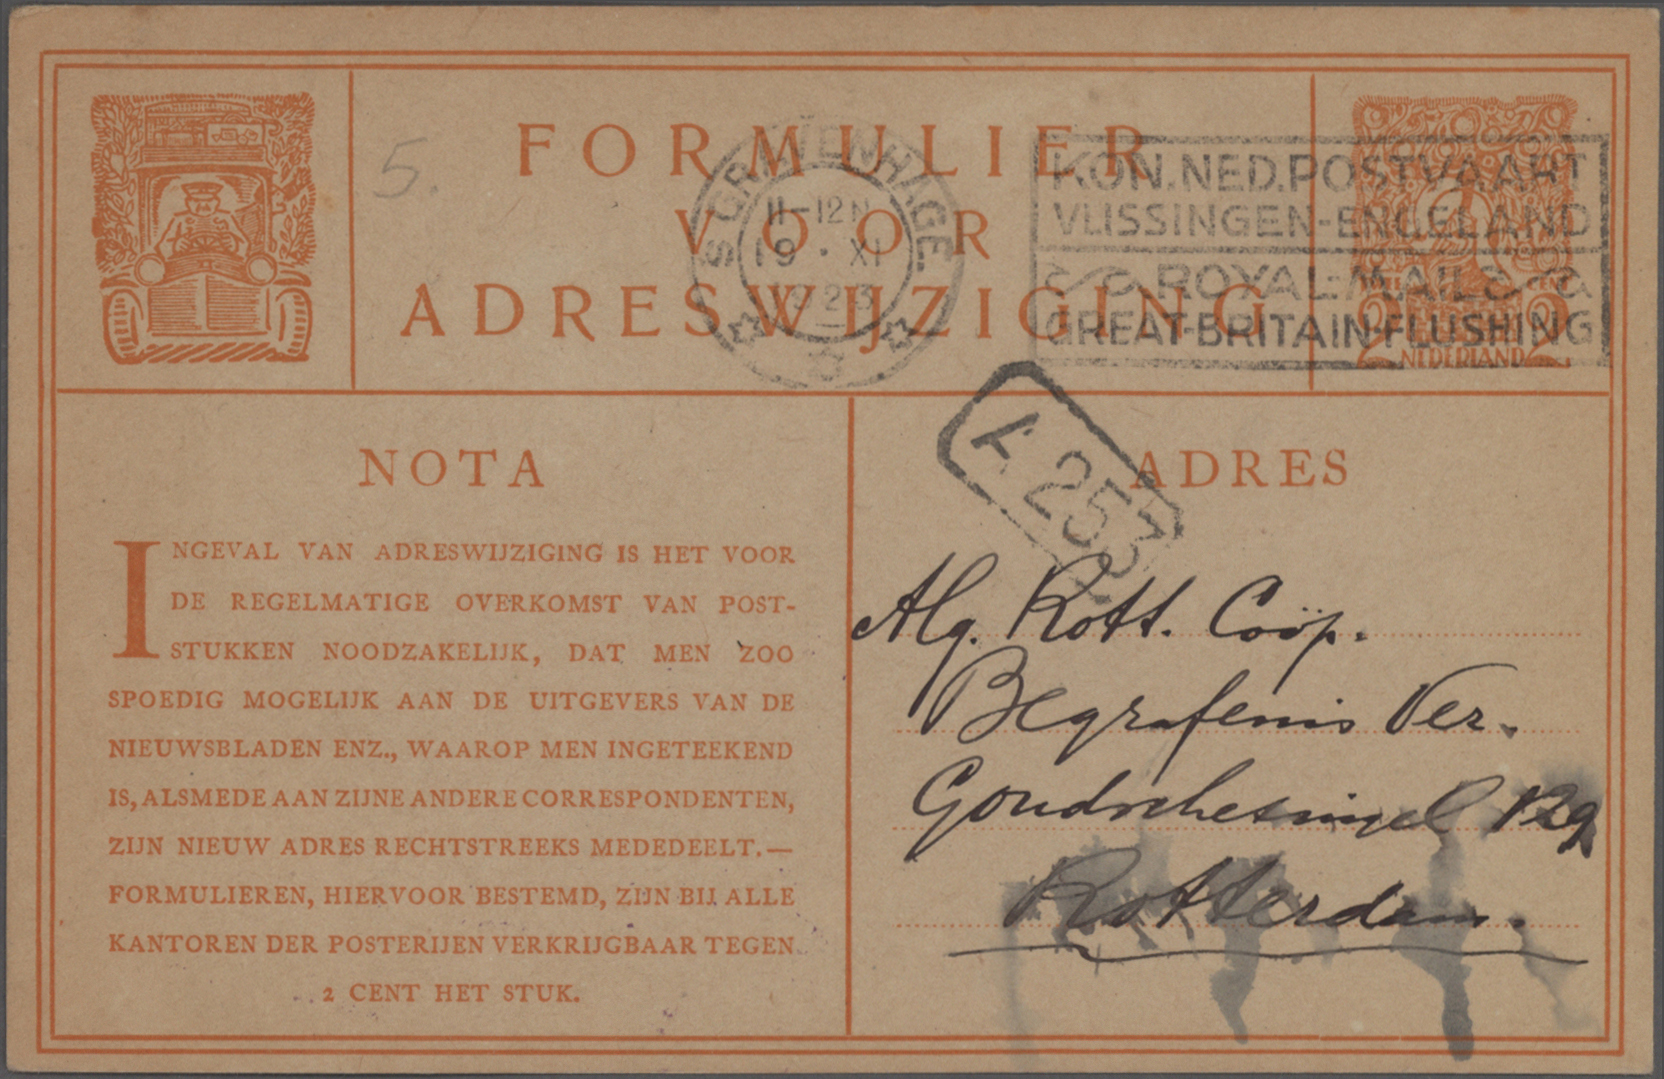 5.
FORMULIER
VOOR
ADRESWIJZIGING
'S GRAVENHAGE.
11-12 N
19 · XI
1923
KON. NED. POSTVAART
VLISSINGEN-ENGELAND
ROYAL-MAIL
GREAT-BRITAIN-FLUSHING
2 2
NEDERLAND
NOTA
INGEVAL VAN ADRESWIJZIGING IS HET VOOR
DE REGELMATIGE OVERKOMST VAN POST-
STUKKEN NOODZAKELIJK, DAT MEN ZOO
SPOEDIG MOGELIJK AAN DE UITGEVERS VAN DE
NIEUWSBLADEN ENZ., WAAROP MEN INGETEEKEND
IS, ALSMEDE AAN ZIJNE ANDERE CORRESPONDENTEN,
ZIJN NIEUW ADRES RECHTSTREEKS MEDEDEELT.—
FORMULIEREN, HIERVOOR BESTEMD, ZIJN BIJ ALLE
KANTOREN DER POSTERIJEN VERKRIJGBAAR TEGEN
2 CENT HET STUK.
ADRES
A 253
Alg. Rott. Coöp.
Begrafenis Ver.
Goudschesingel 129
Rotterdam.